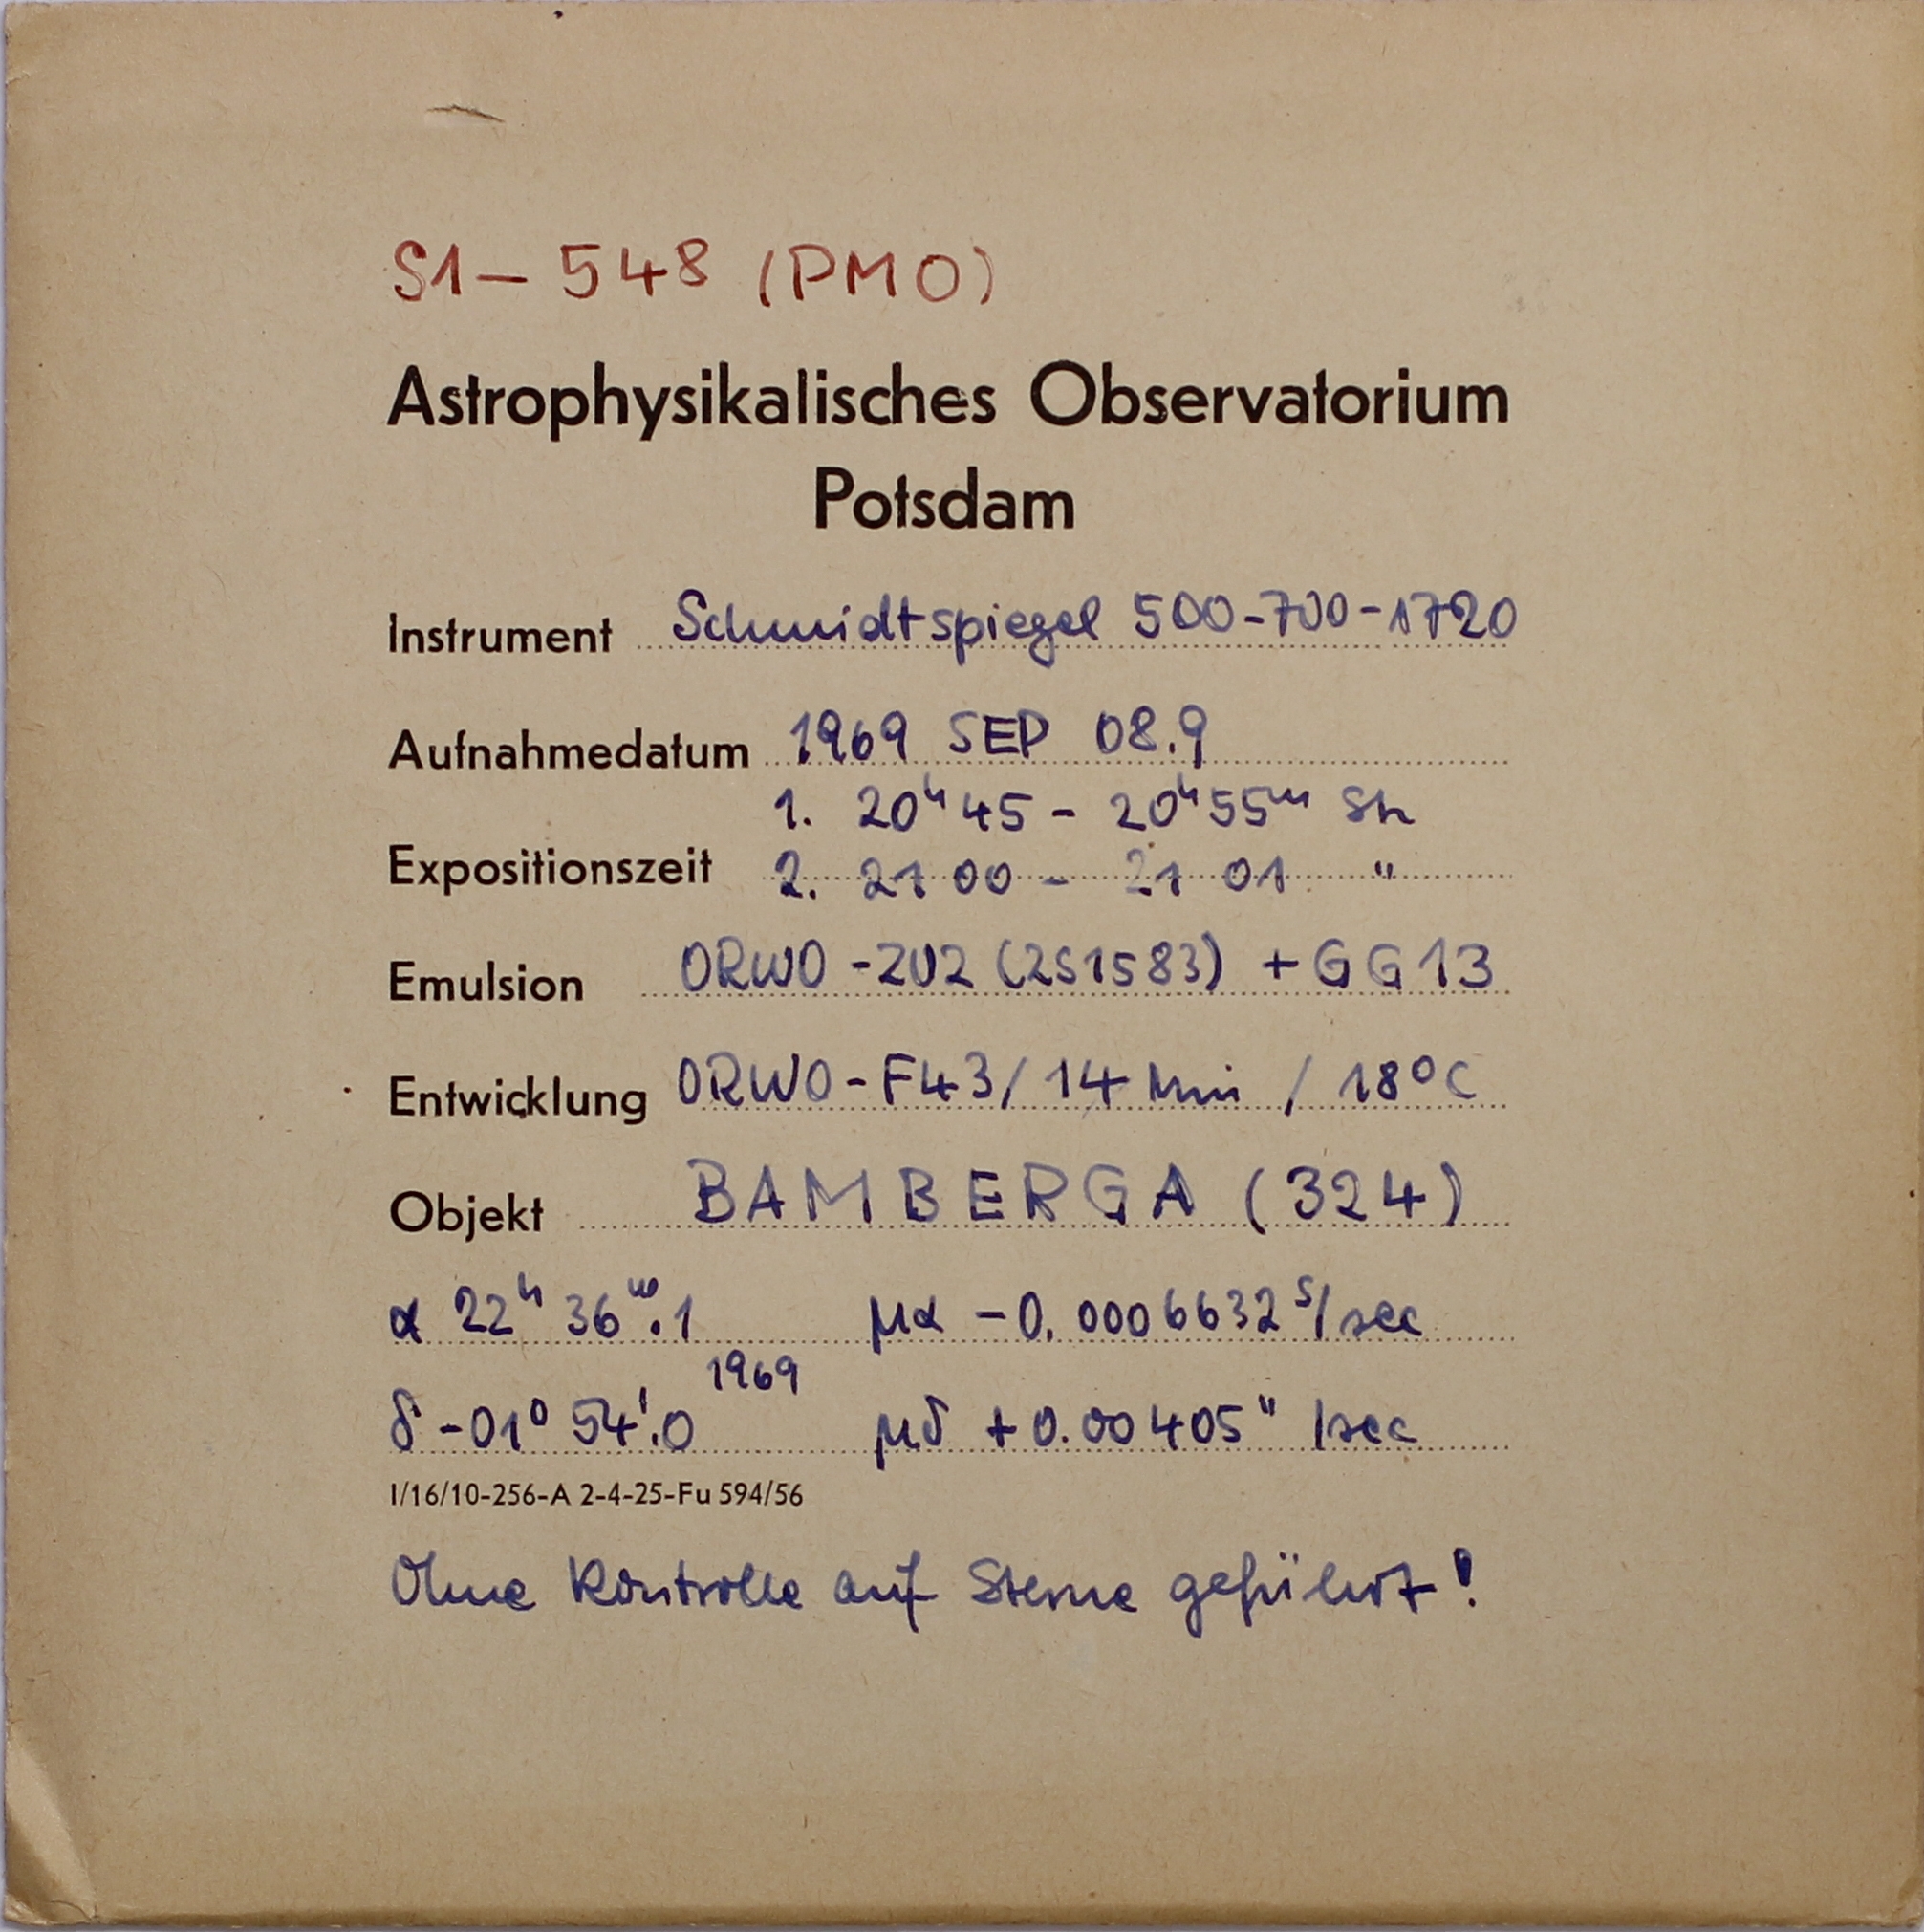 S1 – 548 (PMO)
Astrophysikalisches Observatorium
Potsdam
Instrument Schmidtspiegel 500-700-1720
Aufnahmedatum 1969 SEP 08.9
1. 20ʰ45 - 20ʰ55ᵐ Sh
Expositionszeit 2. 21 00 - 21 01 "
Emulsion ORWO -ZU2 (251583) + GG13
Entwicklung ORWO-F43/ 14 Min / 18°C
Objekt BAMBERGA (324)
α 22ʰ 36ᵐ.1 μα -0.0006632ˢ/sec
1969
δ -01° 54'.0 μδ +0.00405" /sec
I/16/10-256-A 2-4-25-Fu 594/56
Ohne Kontrolle auf Sterne geführt!